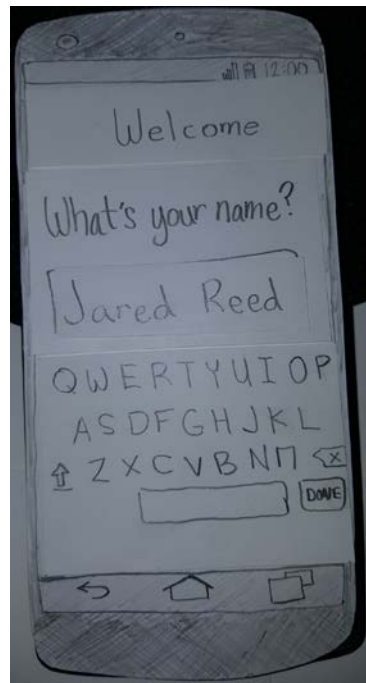 12:00
Welcome
What's your name?
Jared Reed
QWERTYUIOP
ASDFGHJKL
ZXCVBNM
X
DONE